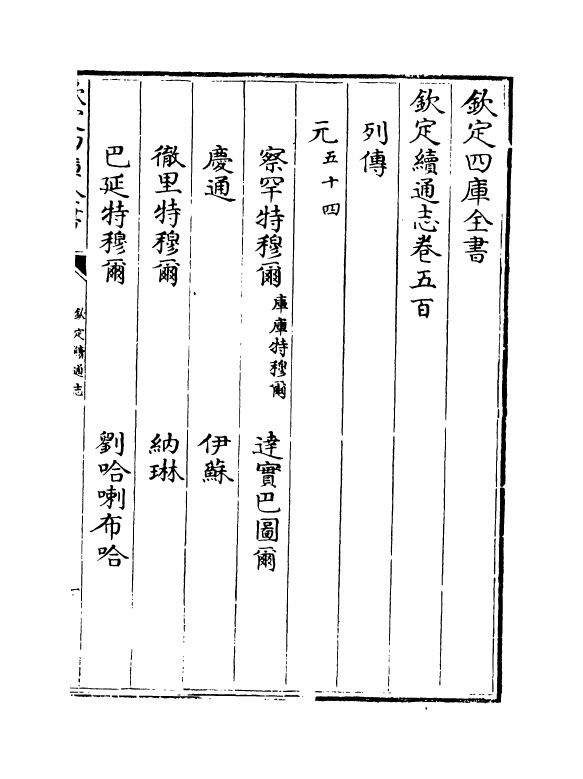 欽定四庫全書
欽定續通志卷五百
列傳
元五十四
察罕特穆爾庫庫特穆爾 達實巴圖爾
慶通 伊蘇
徹里特穆爾 納琳
巴延特穆爾 劉哈喇布哈
欽定四庫全書 欽定續通志 一